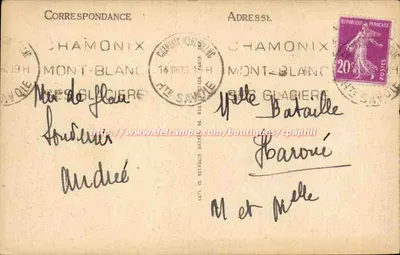 CORRESPONDANCE
ADRESSE
CHAMONIX
MONT-BLANC
SES GLACIERS
CHAMONIX-MT-BLANC
HTE SAVOIE
CHAMONIX
MONT-BLANC
SES GLACIERS
RÉPUBLIQUE FRANÇAISE
20c
POSTES
HTE SAVOIE
Mer de glace
Souvenir
André
Melle Bataille
Haroué
M et Melle
www.delcampe.com/boutiques/cpaphil